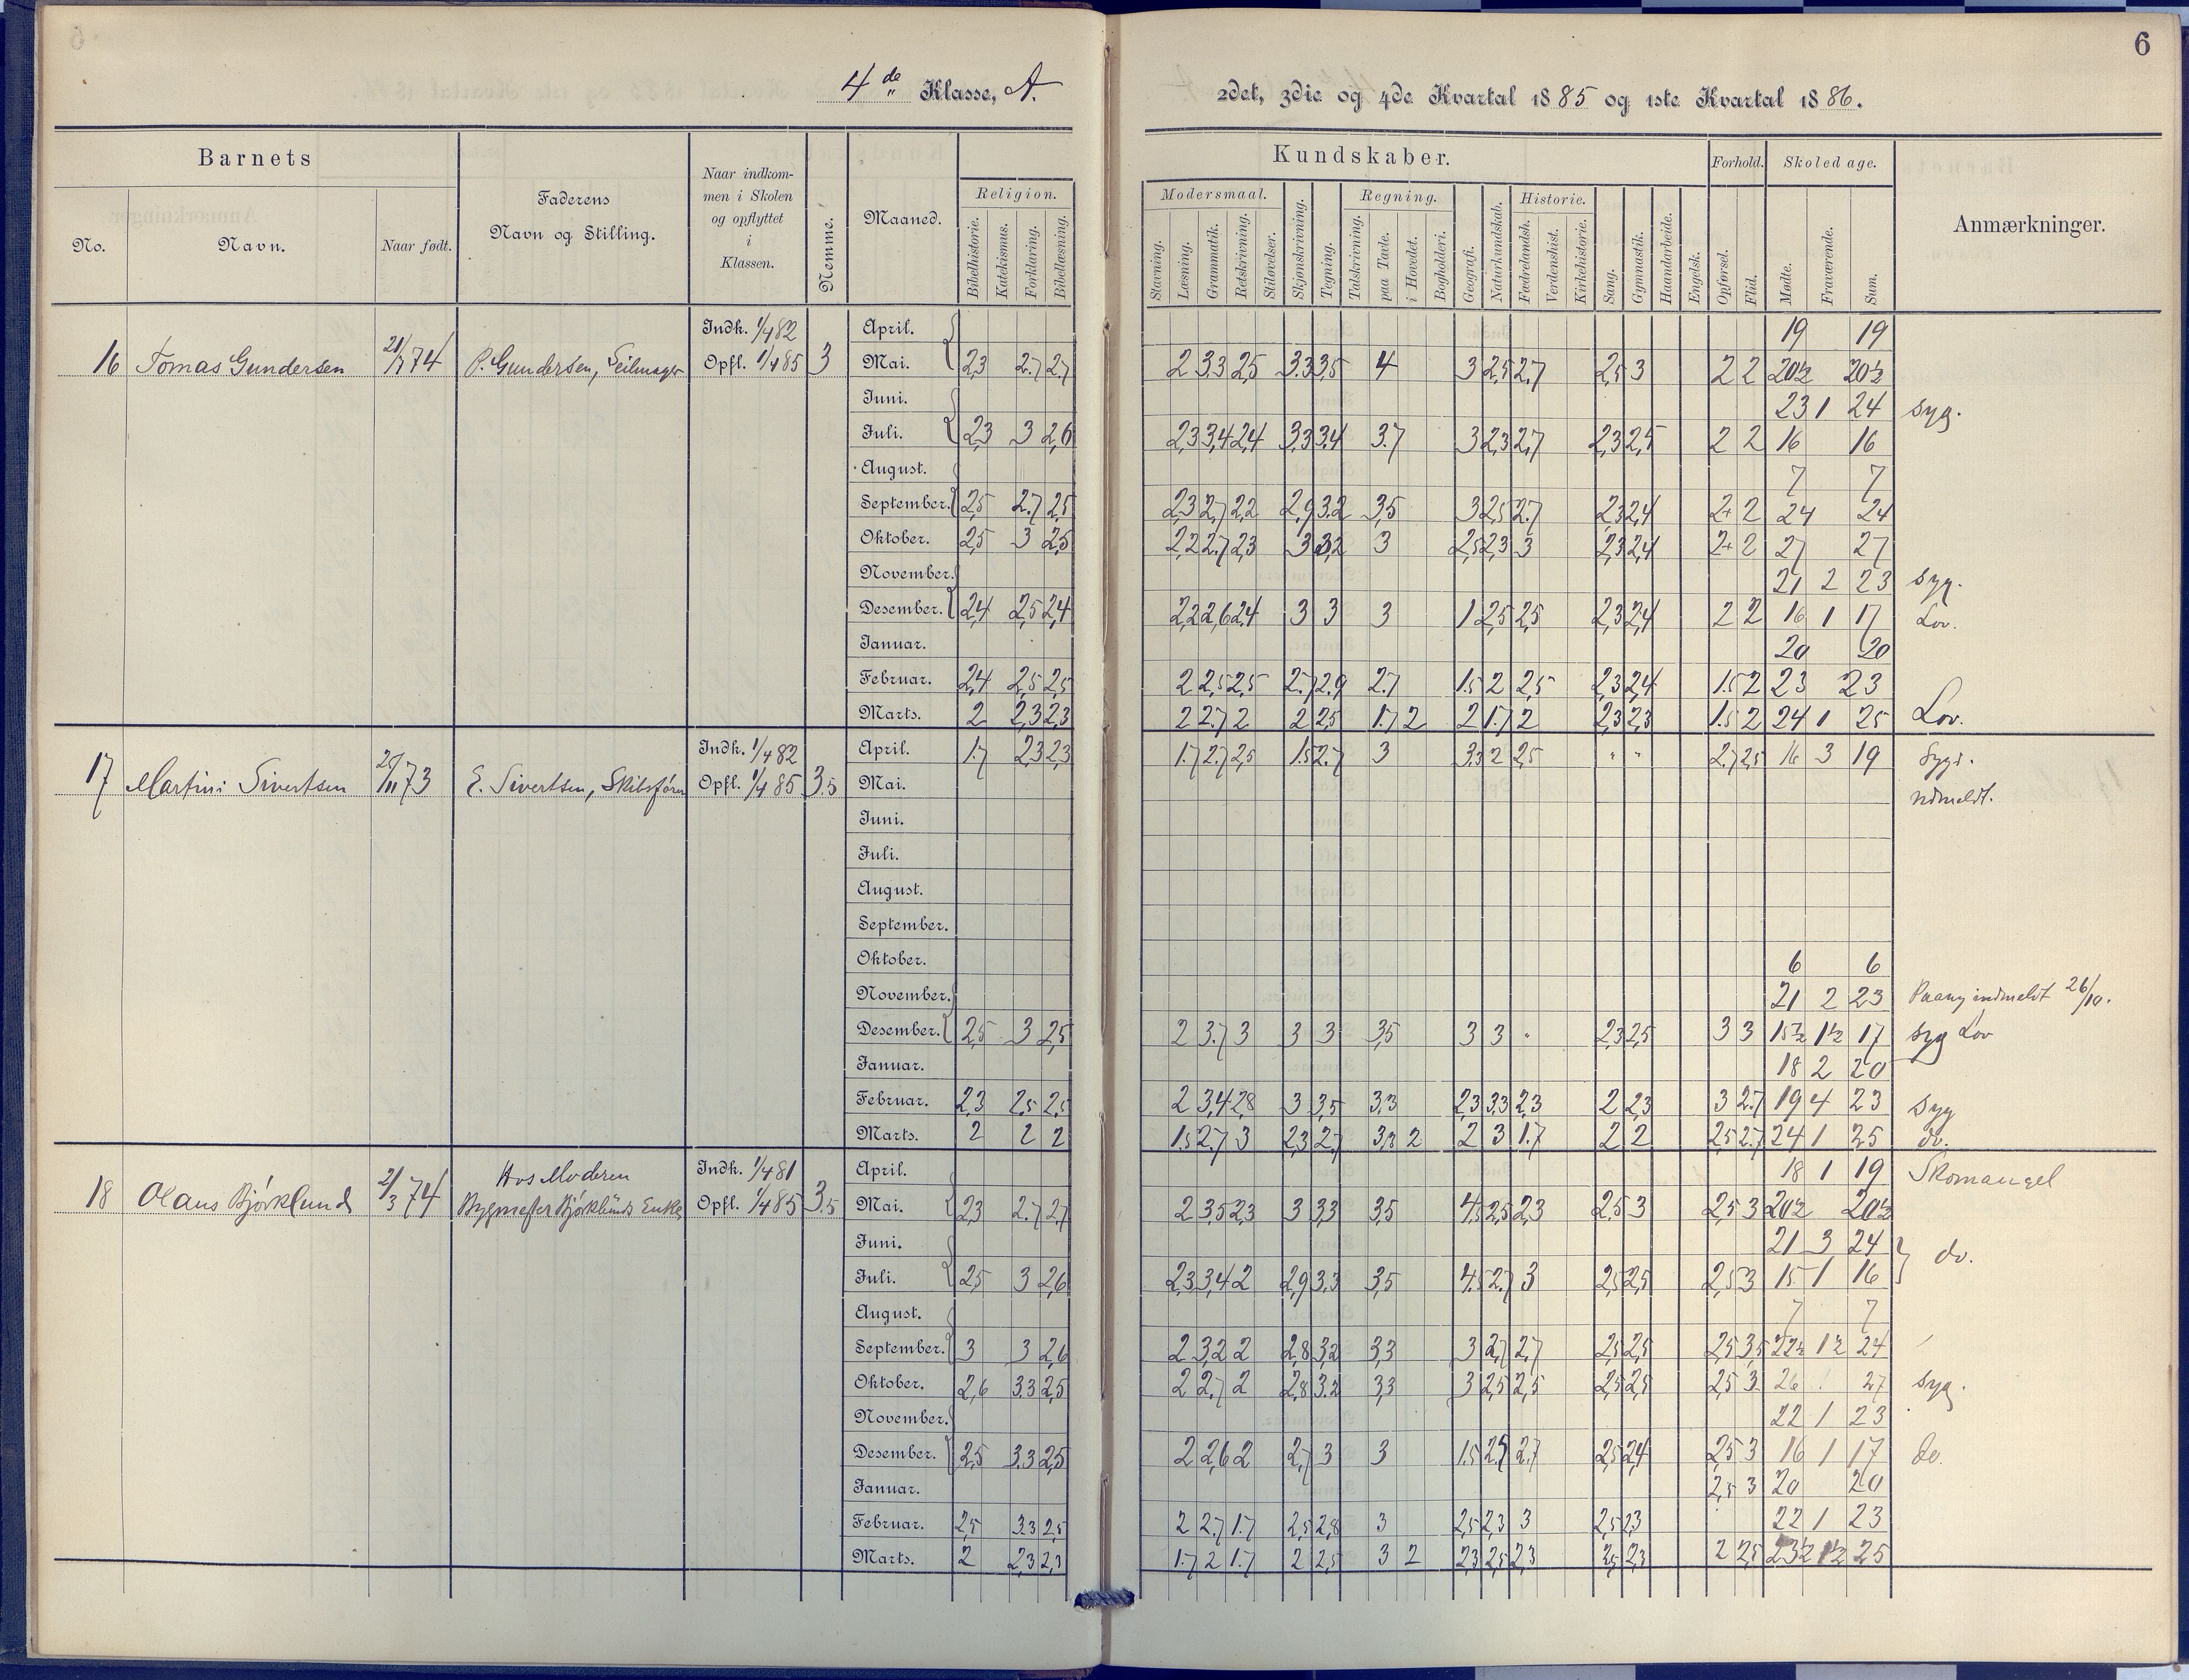 6
4de Klasse, A.
2det, 3die og 4de Kvartal 1885 og 1ste Kvartal 1886.
Barnets
Faderens Navn og Stilling.
Naar indkommen i Skolen og opflyttet i Klassen.
Nemme.
Maaned.
Kundskaber.
Forhold.
Skoledage.
Anmærkninger.
No. Navn. Naar født.
Religion. Modersmaal. Regning. Historie.
Bibelhistorie. Katekismus. Forklaring. Bibellæsning. Stavning. Læsning. Grammatik. Retskrivning. Stiløvelser. Skjønskrivning. Tegning. Talskrivning. paa Tavle. i Hovedet. Bogholderi. Geografi. Naturkundskab. Fædrelandsh. Verdenshist. Kirkehistorie. Sang. Gymnastik. Haandarbeide. Engelsk. Opførsel. Flid. Mødte. Fraværende. Sum.
Indk. 1/4 82 April. 19 19
16 Tomas Gundersen 74 P. Gundersen, Seilmager Opfl. 1/4 85 3 Mai. 2,3 2.7 2,7 2 3.3 2,5 3.3 3,5 4 3 2,5 2.7 2,5 3 2 2 20½ 20½
Juni. 23 1 24 syg.
Juli. 2,3 3 2,6 2,3 3,4 2,4 3,3 3.4 3.7 3 2,3 2,7 2,3 2,5 2 2 16 16
August. 7 7
September. 2,5 2.7 2,5 2,3 2,7 2,2 2,9 3.2 3,5 3 2,5 2.7 2,3 2,4 2+ 2 24 24
Oktober. 2,5 3 2,5 2,2 2.7 2,3 3 3,2 3 2,5 2,3 3 2,3 2,4 2+ 2 27 27
November. 21 2 23 syg.
Desember. 2,4 2,5 2,4 2,2 2,6 2,4 3 3 3 1 2,5 2,5 2,3 2,4 2 2 16 1 17 Lov.
Januar. 20 20
Februar. 2,4 2,5 2,5 2 2,5 2,5 2.7 2.9 2.7 1.5 2 2,5 2,3 2,4 1.5 2 23 23
Marts. 2 2,3 2,3 2 2.7 2 2 2,5 1.7 2 2 1.7 2 2,3 2,3 1.5 2 24 1 25 Lov.
Indk. 1/4 82 April. 1.7 2,3 2,3 1.7 2.7 2,5 1.5 2.7 3 3,3 2 2,5 " " 2.7 2,5 16 3 19
17 Martini Sivertsen 73 E. Sivertsen, Skibsfører Opfl. 1/4 85 3.5 Mai.
Juni.
Juli.
August.
September.
Oktober. 6 6
November. 21 2 23 Paany indmeldt 26/10.
Desember. 2,5 3 2,5 2 3.7 3 3 3 3,5 3 3 " 2,3 2,5 3 3 15½ 1½ 17 syg Lov
Januar. 18 2 20
Februar. 2,3 2,5 2,5 2 3,4 2,8 3 3,5 3,3 2,3 3.3 2,3 2 2,3 3 2.7 19 4 23 syg
Marts. 2 2 2 1.5 2.7 3 2,3 2.7 2 2 3 1.7 2 2 2,5 2.7 24 1 25 do.
Hos Moderen Indk. 1/4 81 April. 18 1 19 Skomangel
18 Olaus Bjørklund 2/3 74 Bygmester Bjørklunds Enke Opfl. 1/4 85 3.5 Mai. 2,3 2.7 2,7 2 3,5 2,3 3 3,3 3,5 4,5 2,5 2,3 2,5 3 2,5 3 20½ 20½
Juni. 21 3 24 do.
Juli. 2,5 3 2,6 2,3 3,4 2 2,9 3.3 3,5 4.5 2.7 3 2,5 2,5 2,5 3 15 1 16
August. 7 7
September. 3 3 2,6 2 3,2 2 2,8 3,2 3,3 3 2,7 2.7 2,5 2,5 2,5 3,5 22½ 1½ 24
Oktober. 2,6 3.3 2,5 2 2,7 2 2,8 3.2 3,3 3 2,5 2,5 2,5 2,5 2,5 3 26 1 27 syg.
November. 22 1 23
Desember. 2,5 3.3 2,5 2 2,6 2 2,7 3 3 1.5 2,7 2,5 2,4 2,5 3 16 1 17 do.
Januar. 2,5 3 20 20
Februar. 2,5 3.3 2,5 2 2.7 1.7 2,5 2,8 3 2,5 2,3 3 2,5 2,3 22 1 23
Marts. 2 2,3 2,3 1.7 2 1.7 2 2,5 3 2 2,3 2,5 2,3 2,5 2,3 2 2,5 23½ 1½ 25